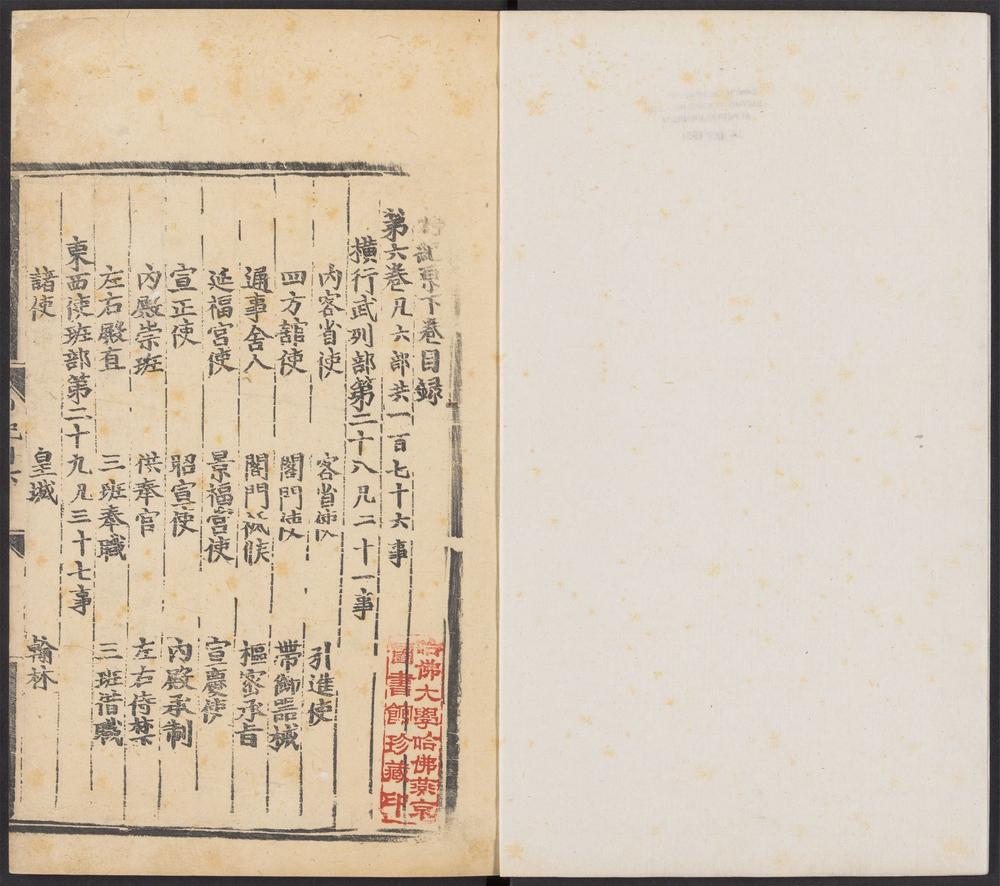 紀原下卷目録
第六卷凡六部共一百七十六事
橫行武列部第二十八凡二十一事
內客省使 客省使 引進使
四方館使 閣門使 帶飾器械
通事舍人 閣門祗候 樞密承旨
延福宮使 景福宮使 宣慶使
宣正使 昭宣使 內殿承制
內殿崇班 供奉官 左右侍禁
左右殿直 三班奉職 三班借職
東西使班部第二十九凡三十七事
諸使 皇城 翰林
哈佛大學哈佛燕京
圖書館珍藏印